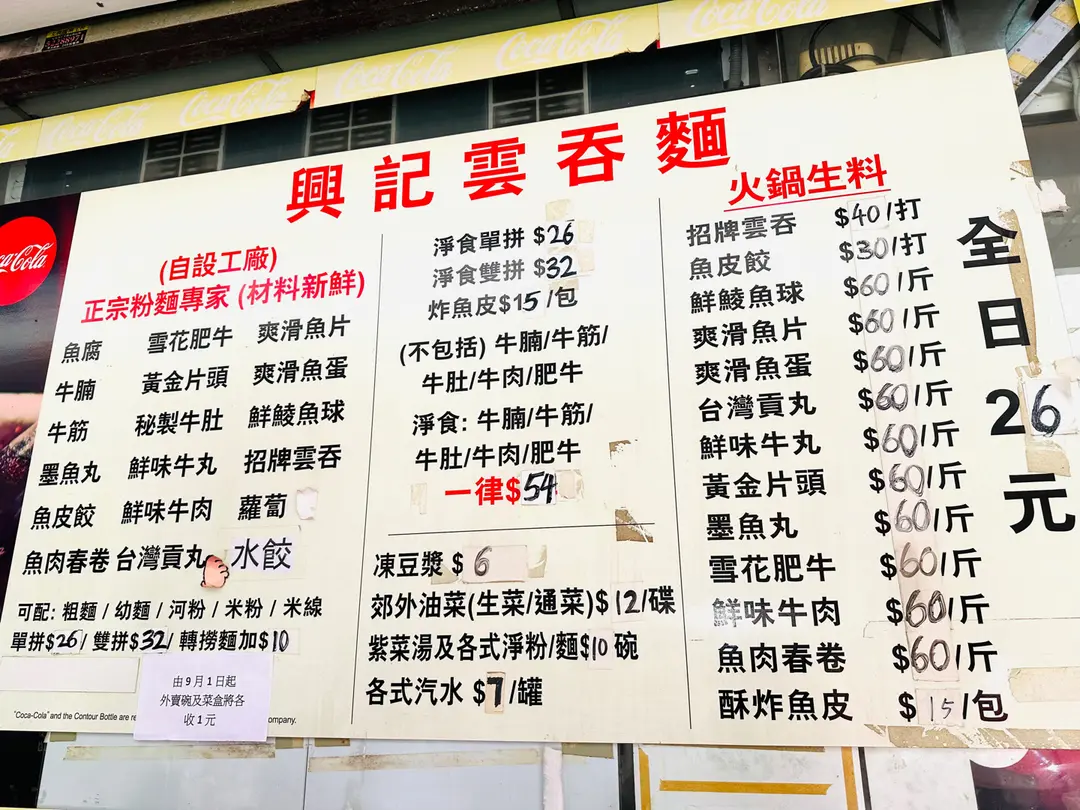 Coca-Cola Coca-Cola Coca-Cola Coca-Cola Coca-Cola
興記雲吞麵
(自設工廠)
正宗粉麵專家 (材料新鮮)
魚腐 雪花肥牛 爽滑魚片
牛腩 黃金片頭 爽滑魚蛋
牛筋 秘製牛肚 鮮鯪魚球
墨魚丸 鮮味牛丸 招牌雲吞
魚皮餃 鮮味牛肉 蘿蔔
魚肉春卷 台灣貢丸 水餃
可配: 粗麵 / 幼麵 / 河粉 / 米粉 / 米線
單拼$26/ 雙拼$32/ 轉撈麵加$10
由9月1日起
外賣碗及菜盒將各
收1元
"Coca-Cola" and the Contour Bottle are
ompany.
淨食單拼 $26
淨食雙拼 $32
炸魚皮$15/包
(不包括) 牛腩/牛筋/
牛肚/牛肉/肥牛
淨食: 牛腩/牛筋/
牛肚/牛肉/肥牛
一律$54
凍豆漿 $6
郊外油菜(生菜/通菜)$12/碟
紫菜湯及各式淨粉/麵$10碗
各式汽水 $7/罐
火鍋生料
招牌雲吞 $40/打
魚皮餃 $30/打
鮮鯪魚球 $60/斤
爽滑魚片 $60/斤
爽滑魚蛋 $60/斤
台灣貢丸 $60/斤
鮮味牛丸 $60/斤
黃金片頭 $60/斤
墨魚丸 $60/斤
雪花肥牛 $60/斤
鮮味牛肉 $60/斤
魚肉春卷 $60/斤
酥炸魚皮 $15/包
全日26元